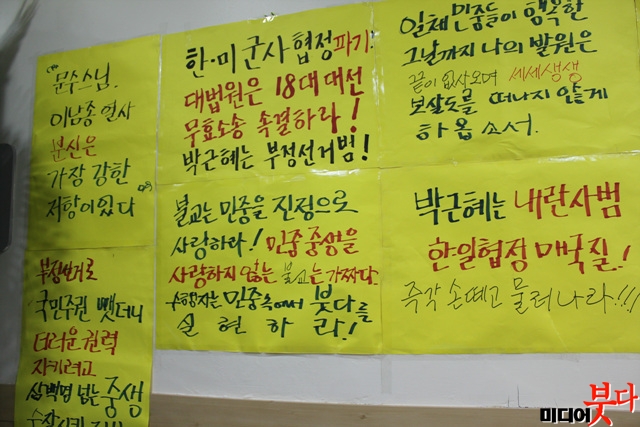 문수스님.
이남종 열사
분신은
가장 강한
저항이었다
부정선거로
국민주권 뺏더니
더러운 권력
지키려고
삼백명 넘는 중생
한·미 군사 협정 파기.
대법원은 18대 대선
무효소송 속결하라!
박근혜는 부정선거범!
불교는 민중을 진정으로
사랑하라! 민중 중생을
사랑하지 않는 불교는 가짜다.
수행자는 민중속에서 붓다를
실현하라!
일체 민중들이 행복한
그날까지 나의 발원은
끝이 없사오며 세세생생
보살도를 떠나지 않게
하옵소서.
박근혜는 내란사범
한일협정 매국질!
즉각 손떼고 물러나라!!!
미디어붓다